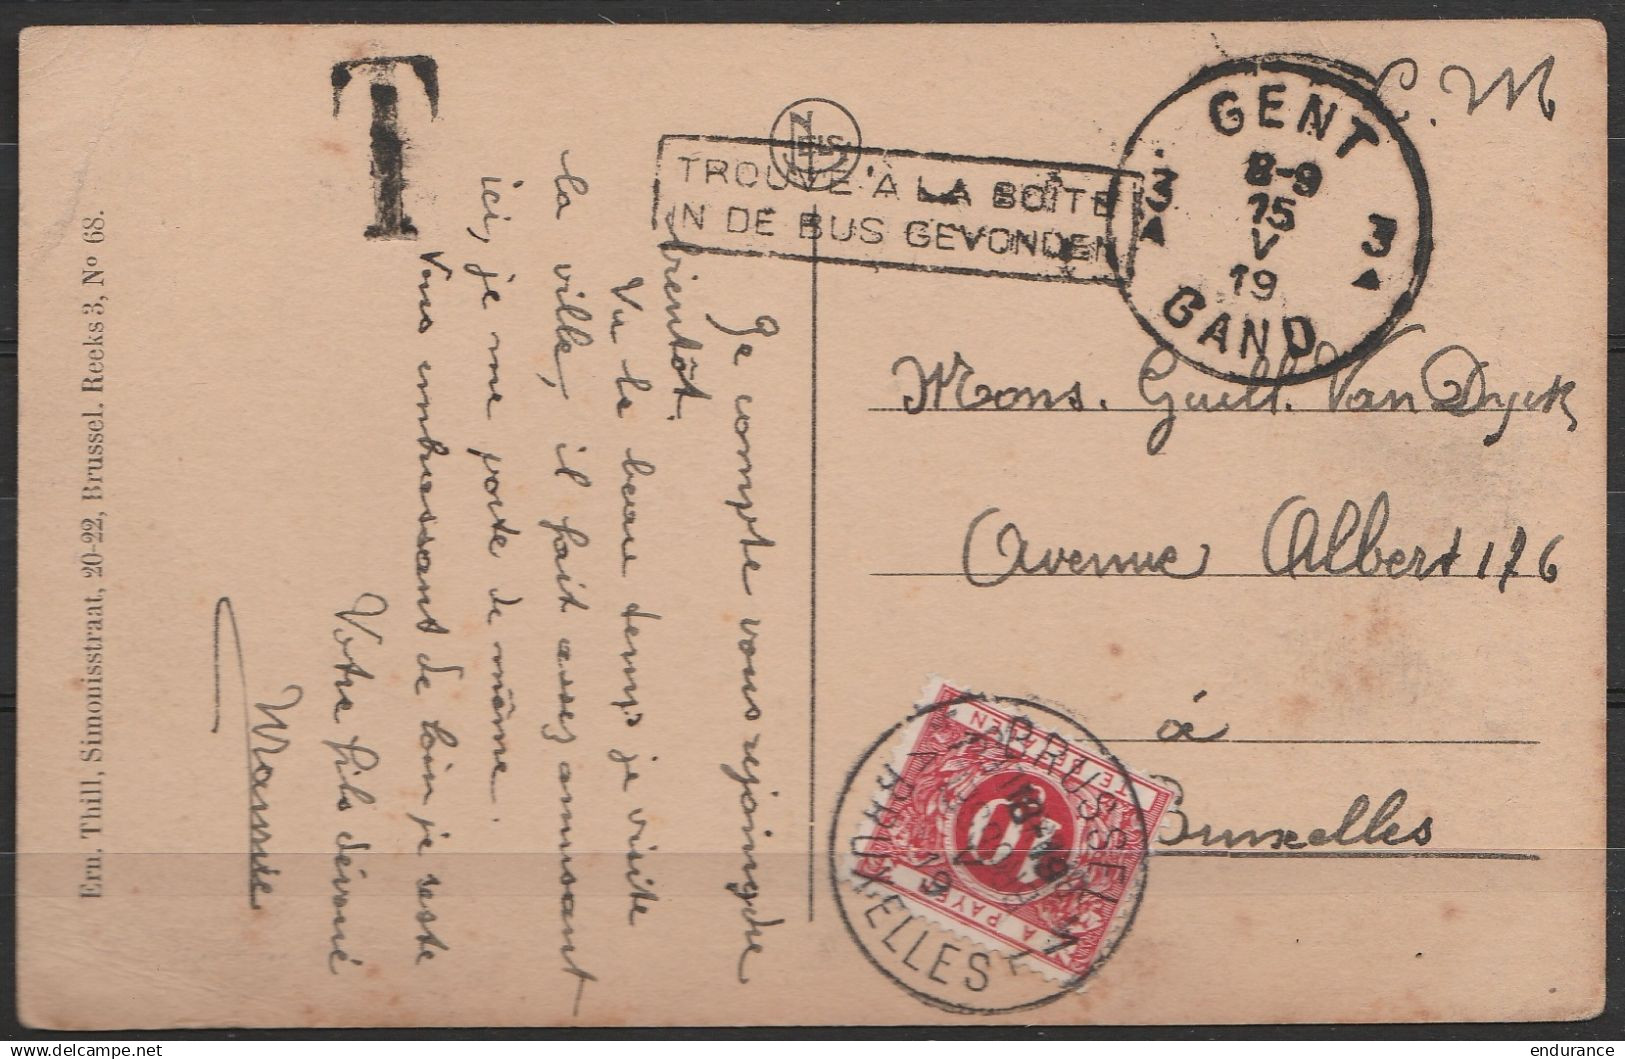 T
NELS
TROUVÉ À LA BOÎTE
IN DE BUS GEVONDEN
GENT
8-9
15
V
19
3 3
GAND
C.M
Je compte vous rejoindre
bientôt.
Vu le beau temps je visite
la ville, il fait assez amusant
ici, je me porte de même.
Vous embrassant de loin je reste
Votre fils dévoué
Mons. Guill. Van Dyck
Avenue Albert 176
à
Bruxelles
TE BETALEN
10
A PAYER
BRUSSEL 1
V
19
BRUXELLES 1
Ern. Thill, Simonisstraat, 20-22, Brussel. Reeks 3, Nº 68.
delcampe.net
endurance